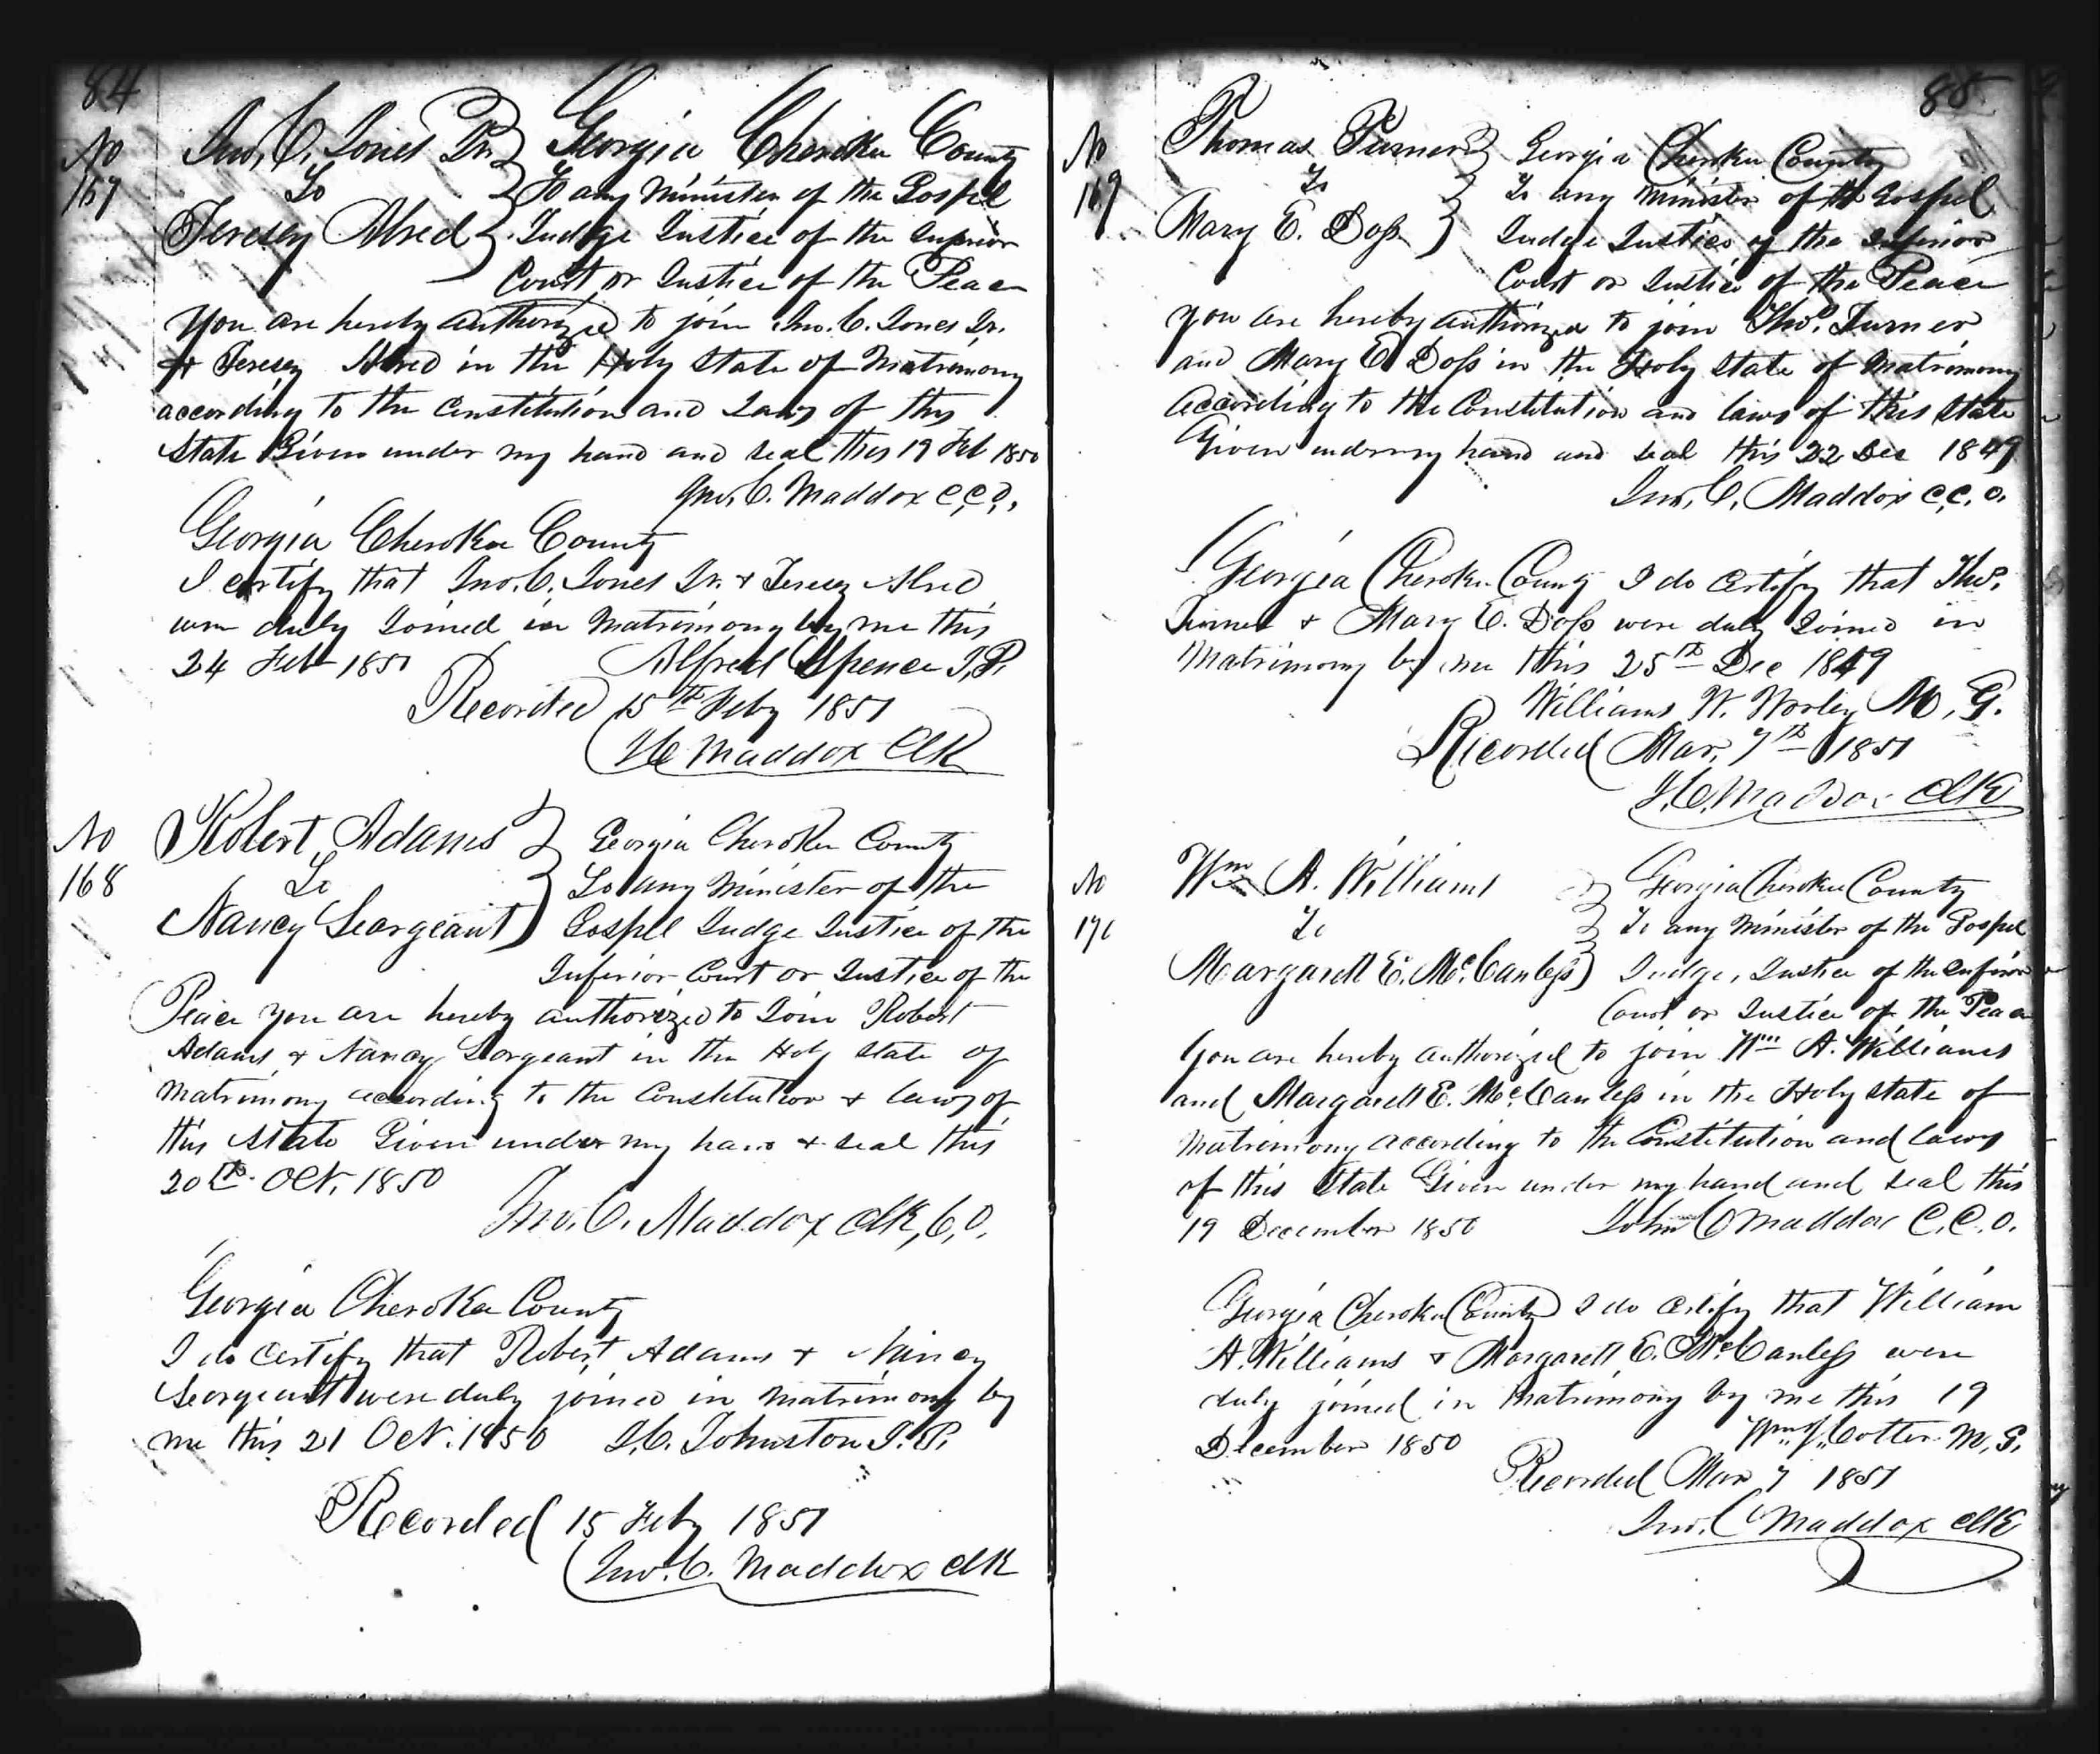 84
No
167
Jno. C. Jones Jr. Georgia Cherokee County
To To any Minister of the Gospel
Teresey Alred Judge Justice of the Inferior
Court or Justice of the Peace
You are hereby authorized to join Jno. C. Jones Jr.
& Teresey Alred in the Holy State of Matrimony
according to the Constitution and Laws of this
State Given under my hand and seal this 19 Feb 1850
Jno. C. Maddox C.C.O.
Georgia Cherokee County
I certify that Jno. C. Jones Jr. & Teresey Alred
were duly Joined in Matrimony by me this
24 Feb 1850
Alfred Spence J.P.
Recorded 15th Feby 1851
J C Maddox Clk
No
168
Robert Adams Georgia Cherokee County
To To any Minister of the
Nancy Seargeant Gospel Judge Justice of the
Inferior Court or Justice of the
Peace you are hereby authorized to Join Robert
Adams & Nancy Sargeant in the Holy State of
Matrimony according to the Constitution & laws of
this State Given under my hand & seal this
20th Oct. 1850
Jno. C. Maddox Clk, C,O.
Georgia Cherokee County
I do certify that Robert Adams & Nancy
Seargeant were duly joined in matrimony by
me this 21 Oct. 1850 J.C. Johnston J.P.
Recorded 15 Feby 1851
Jno. C. Maddox Clk
85
No
169
Thomas Turner Georgia Cherokee County
To To any Minister of the Gospel
Mary E. Doss Judge Justice of the Inferior
Court or Justice of the Peace
you are hereby authorized to join Thos. Turner
and Mary E Doss in the Holy State of Matrimony
According to the Constitution and laws of this State
Given under my hand and seal this 22 Dec 1849
Jno. C. Maddox C.C.O.
Georgia Cherokee County I do certify that Thos.
Turner & Mary E. Doss were duly Joined in
Matrimony by me this 25th Dec 1849
Williams W. Worley M.G.
Recorded Mar. 7th 1851
J.C. Maddox Clk
No
170
Wm A. Williams Georgia Cherokee County
To To any Minister of the Gospel
Margarett E. McCanless Judge, Justice of the Inferior
Court or Justice of the Peace
You are hereby authorized to join Wm A. Williams
and Margarett E. McCanless in the Holy State of
Matrimony according to the Constitution and laws
of this State Given under my hand and seal this
19 December 1850 John C Maddox C.C.O.
Georgia Cherokee County I do certify that William
A. Williams & Margarett E. McCanless were
duly joined in Matrimony by me this 19
December 1850 Wm J. Cotter M.G.
Recorded Mar 7 1851
Jno. C Maddox Clk